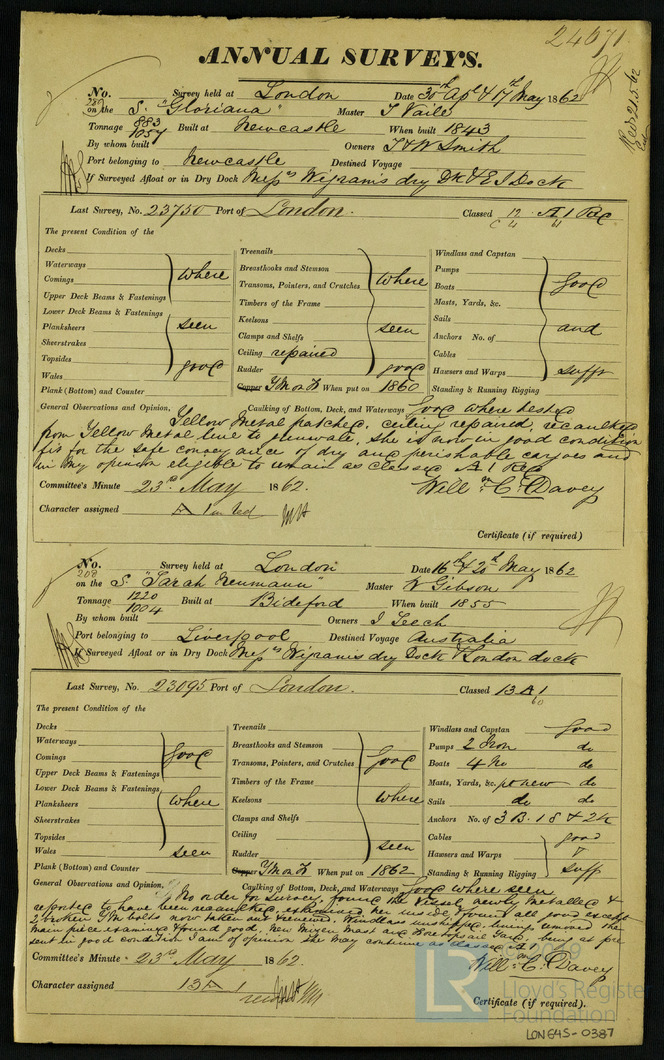 24671
ANNUAL SURVEYS.
No. 287 Survey held at London Date 30th Apl & 17th May 1862
on the S. "Gloriana" Master J Vaile
Tonnage 883 1057 Built at Newcastle When built 1843
By whom built Owners T & W Smith
Port belonging to Newcastle Destined Voyage
If Surveyed Afloat or in Dry Dock Messrs Wigrams dry Dk & E I Dock
Last Survey, No. 23750 Port of London. Classed 12 A 1 Red
The present Condition of the
Decks
Waterways
Comings
Upper Deck Beams & Fastenings
Lower Deck Beams & Fastenings
Planksheers
Sheerstrakes
Topsides
Wales
Plank (Bottom) and Counter
where
seen
good
Treenails
Breasthooks and Stemson
Transoms, Pointers, and Crutches
Timbers of the Frame
Keelsons
Clamps and Shelfs
Ceiling repaired
Rudder
Copper YM on F When put on 1860
where
seen
good
Windlass and Capstan
Pumps
Boats
Masts, Yards, &c.
Sails
Anchors No. of
Cables
Hawsers and Warps
Standing & Running Rigging
good
and
sufft
General Observations and Opinion, Caulking of Bottom, Deck, and Waterways good where tested
Yellow Metal patched, ceiling repaired, recaulked
from Yellow Metal line to plansheer. She is now in good condition
fit for the safe conveyance of dry and perishable cargoes and
in my opinion eligible to remain as classed A 1 Red
Committee's Minute 23rd May 1862. Willm C. Davey
Character assigned A 1 in red
Certificate (if required)
No. 208 Survey held at London Date 16th & 20th May 1862
on the S. "Sarah Neumann" Master W Gibson
Tonnage 1220 1004 Built at Bideford When built 1855
By whom built Owners J Leech
Port belonging to Liverpool Destined Voyage Australia
If Surveyed Afloat or in Dry Dock Messrs Wigrams dry Dock & London dock
Last Survey, No. 23095 Port of London. Classed 13 A 1
60
The present Condition of the
Decks
Waterways
Comings
Upper Deck Beams & Fastenings
Lower Deck Beams & Fastenings
Planksheers
Sheerstrakes
Topsides
Wales
Plank (Bottom) and Counter
good
where
seen
Treenails
Breasthooks and Stemson
Transoms, Pointers, and Crutches
Timbers of the Frame
Keelsons
Clamps and Shelfs
Ceiling
Rudder
Copper YM on F When put on 1862
good
where
seen
Windlass and Capstan good
Pumps 2 Iron do
Boats 4 No do
Masts, Yards, &c. pt new do
Sails do do
Anchors No. of 3 B. 1 S & 2 K
Cables good
Hawsers and Warps &
Standing & Running Rigging suff
General Observations and Opinion, Caulking of Bottom, Deck, and Waterways good where seen
No order for survey, found the Vessel newly metalled &
reported to have been recaulked, examined her inside, found all good except
2 broken YM bolts now taken out & renewed. Windlass unshipped, linings removed the
main piece examined & found good. New Mizen mast and Foretopsail Yard, being at pre
sent in good condition I am of opinion she may continue as classed A 1
Committee's Minute 23rd May 1862. Willm C. Davey
Character assigned 13 A 1
Certificate (if required).
LR
© 2019
Lloyd's Register
Foundation
LON645-0387